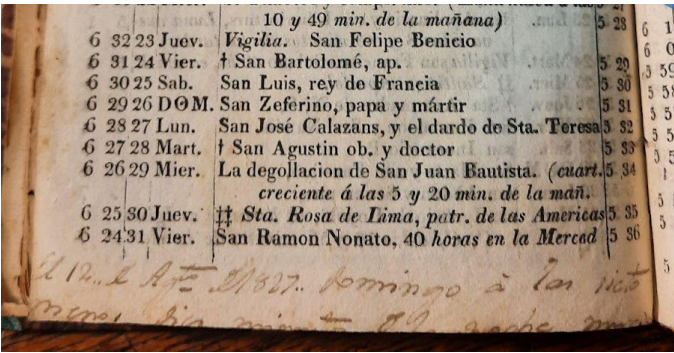 10 y 49 min. de la mañana) 5 28
6 32 23 Juev. Vigilia. San Felipe Benicio
6 31 24 Vier. † San Bartolomé, ap. 5 29
6 30 25 Sab. San Luis, rey de Francia 5 30
6 29 26 DOM. San Zeferino, papa y mártir 5 31
6 28 27 Lun. San José Calazans, y el dardo de Sta. Teresa 5 32
6 27 28 Mart. † San Agustin ob. y doctor 5 33
6 26 29 Mier. La degollacion de San Juan Bautista. (cuart. 5 34
creciente á las 5 y 20 min. de la mañ.
6 25 30 Juev. ‡‡ Sta. Rosa de Lima, patr. de las Americas 5 35
6 24 31 Vier. San Ramon Nonato, 40 horas en la Merced 5 36
El 12.. de Agto. 1827.. Domingo á las siete
menos